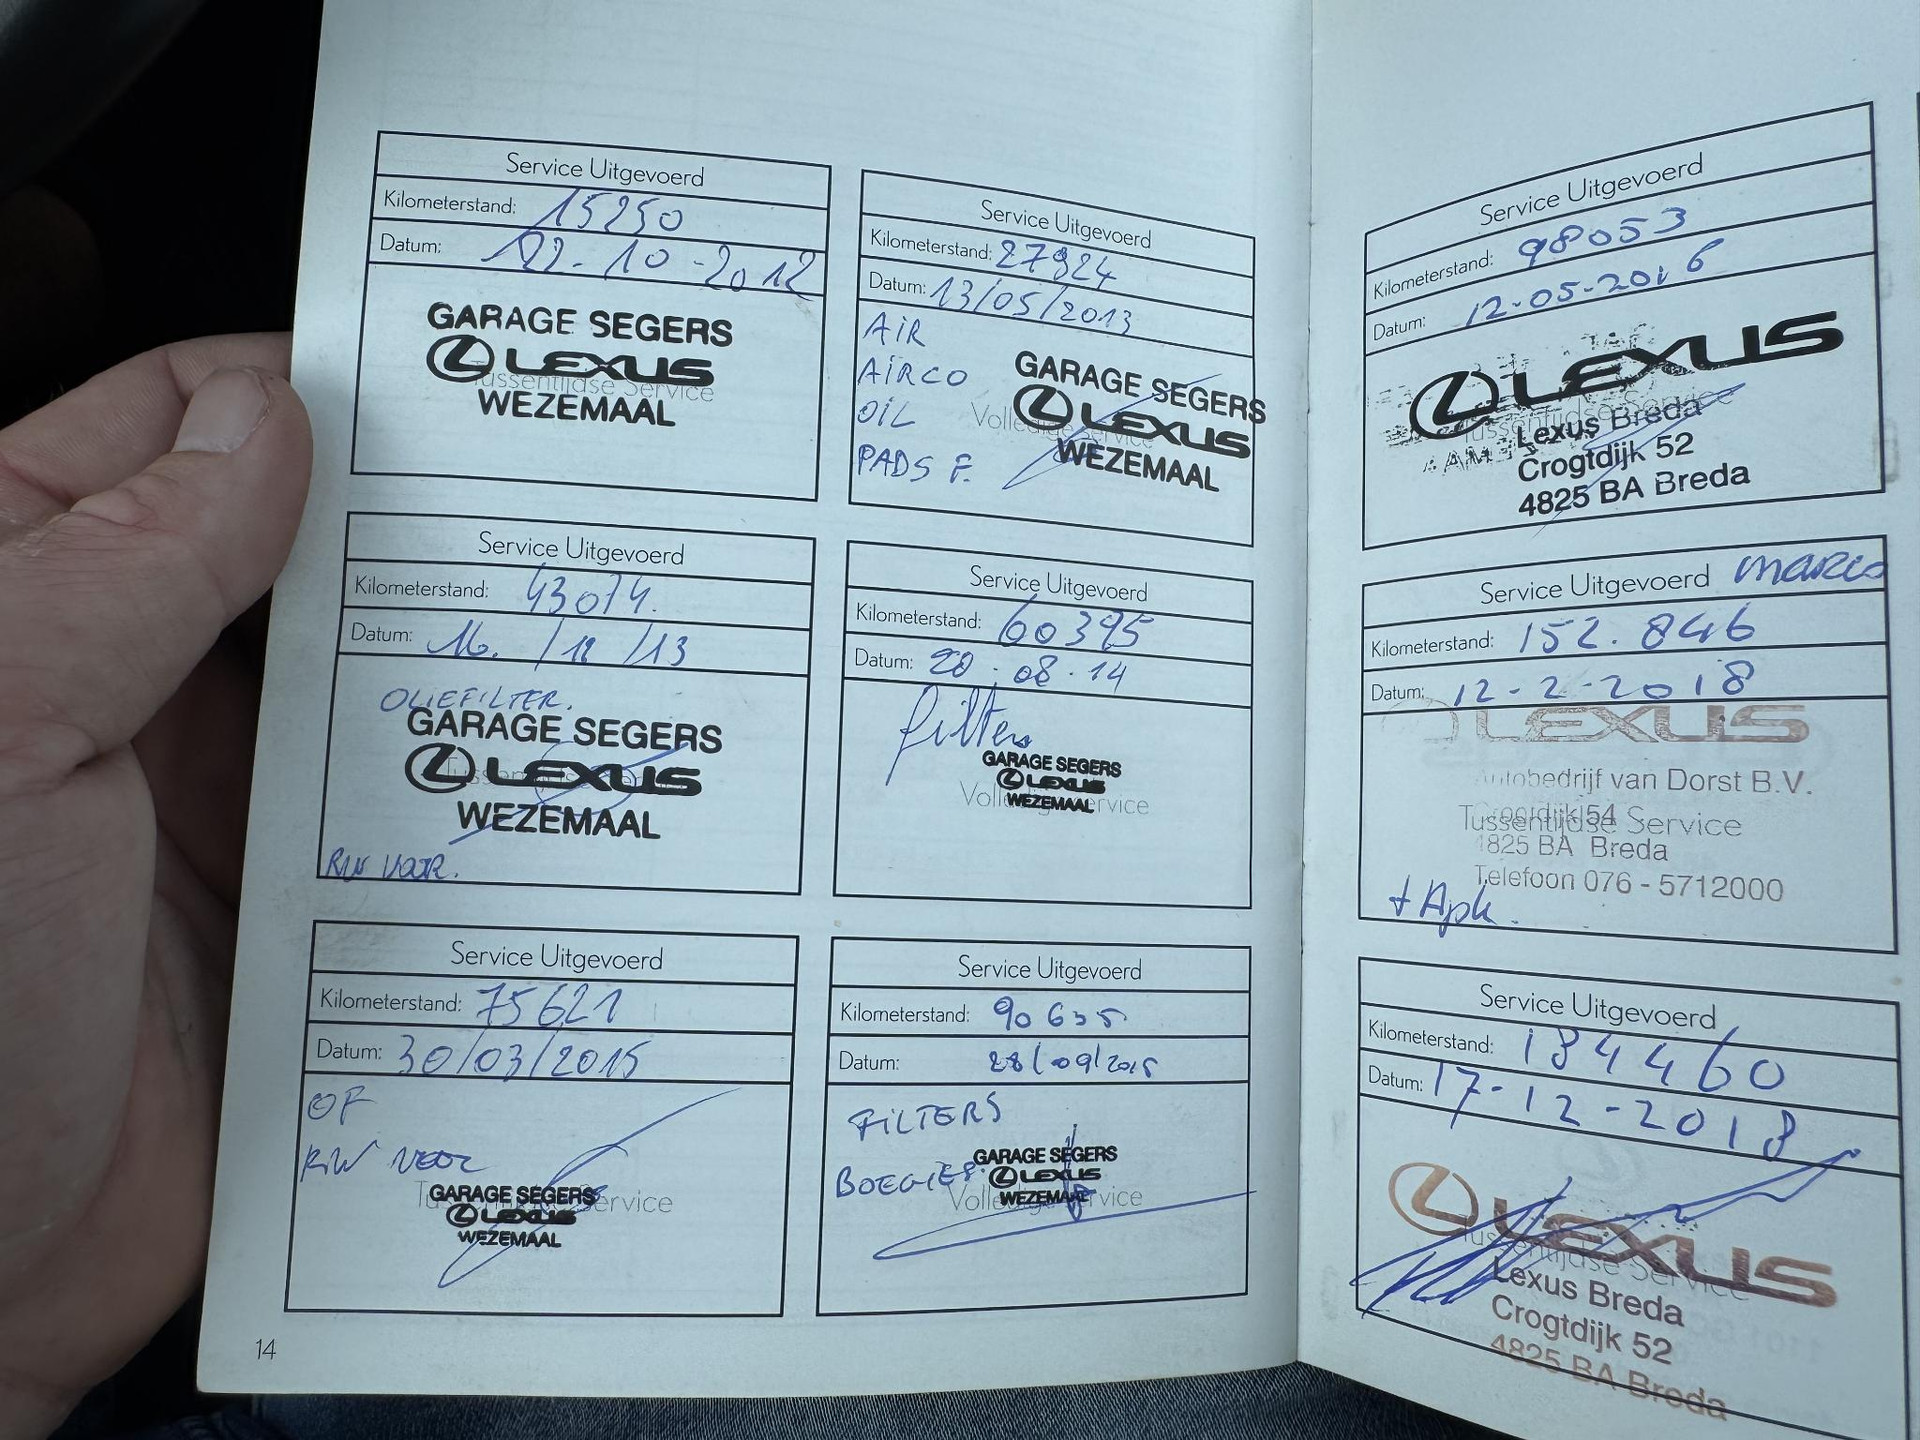 Service Uitgevoerd
Kilometerstand: 15250
Datum: 22-10-2012
GARAGE SEGERS
LEXUS
Tussentijdse Service
WEZEMAAL
Service Uitgevoerd
Kilometerstand: 27924
Datum: 13/05/2013
AIR
AIRCO
OIL
PADS F.
GARAGE SEGERS
LEXUS
Volledige Service
WEZEMAAL
Service Uitgevoerd
Kilometerstand: 43074.
Datum: 16. /12 /13
OLIEFILTER.
GARAGE SEGERS
LEXUS
WEZEMAAL
RW VOOR.
Service Uitgevoerd
Kilometerstand: 60395
Datum: 20.08.14
filters
GARAGE SEGERS
LEXUS
Volledige Service
WEZEMAAL
Service Uitgevoerd
Kilometerstand: 75621
Datum: 30/03/2015
OF
RW VOOR
GARAGE SEGERS
Tussentijdse Service
LEXUS
WEZEMAAL
Service Uitgevoerd
Kilometerstand: 90635
Datum: 28/09/2015
FILTERS
BOEGIES
GARAGE SEGERS
LEXUS
Volledige Service
WEZEMAAL
14
Service Uitgevoerd
Kilometerstand: 98053
Datum: 12-05-2016
LEXUS
Tussentijdse Service
Lexus Breda
Crogtdijk 52
4825 BA Breda
Service Uitgevoerd marco
Kilometerstand: 152.846
Datum: 12-2-2018
LEXUS
Autobedrijf van Dorst B.V.
Crogtdijk 54
Tussentijdse Service
4825 BA Breda
Telefoon 076 - 5712000
+ Apk.
Service Uitgevoerd
Kilometerstand: 184460
Datum: 17-12-2018
LEXUS
Tussentijdse Service
Lexus Breda
Crogtdijk 52
4825 BA Breda